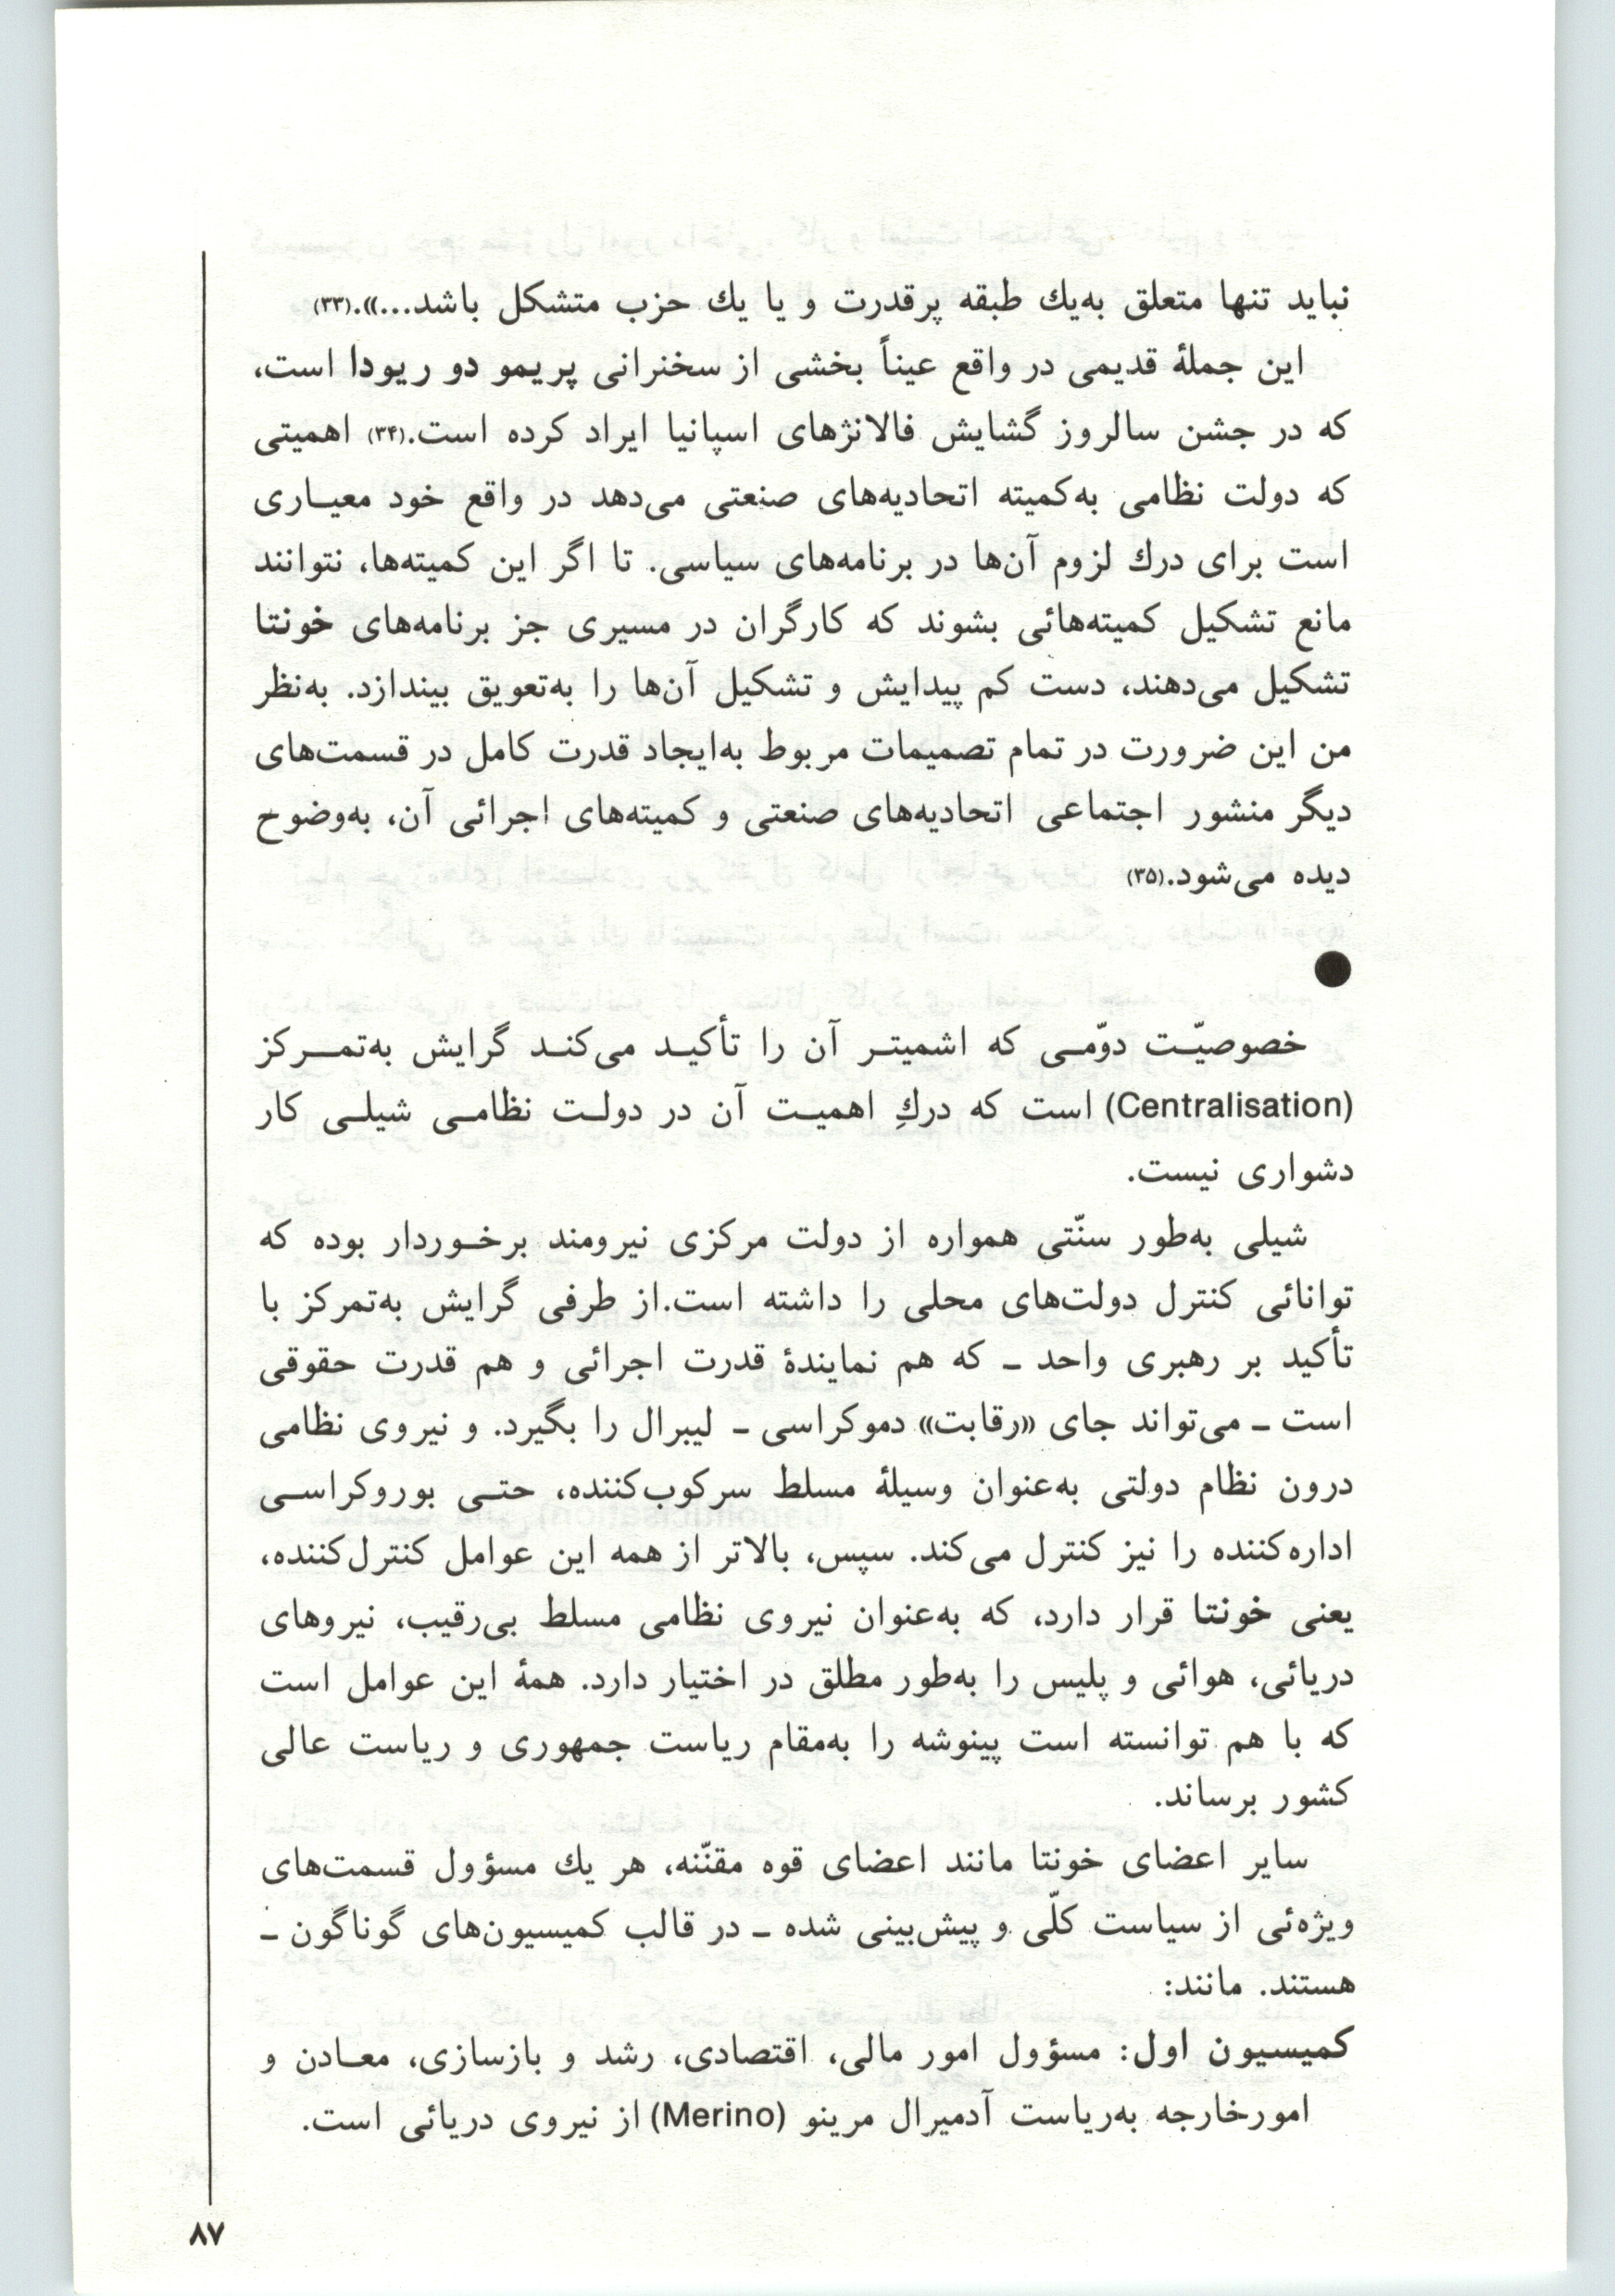 نباید تنها متعلق به‌یك طبقه پرقدرت و یا یك حزب متشکل باشد...)).(۳۳)
این جملهٔ قدیمی در واقع عیناً بخشی از سخنرانی پریمو دو ریودا است،
که در جشن سالروز گشایش فالانژهای اسپانیا ایراد کرده است.(۳۴) اهمیتی
که دولت نظامی به‌کمیته اتحادیه‌های صنعتی می‌دهد در واقع خود معیـاری
است برای درك لزوم آن‌ها در برنامه‌های سیاسی. تا اگر این کمیته‌ها، نتوانند
مانع تشکیل کمیته‌هائی بشوند که کارگران در مسیری جز برنامه‌های خونتا
تشکیل می‌دهند، دست کم پیدایش و تشکیل آن‌ها را به‌تعویق بیندازد. به‌نظر
من این ضرورت در تمام تصمیمات مربوط به‌ایجاد قدرت کامل در قسمت‌های
دیگر منشور اجتماعی اتحادیه‌های صنعتی و کمیته‌های اجرائی آن، به‌وضوح
دیده می‌شود.(۳۵)
●
خصوصیّـت دوّمـی که اشمیتـر آن را تأکیـد می‌کنـد گرایش به‌تمـرکز
(Centralisation) است که دركِ اهمیـت آن در دولـت نظامـی شیلـی کار
دشواری نیست.
شیلی به‌طور سنّتی همواره از دولت مرکزی نیرومند برخـوردار بوده که
توانائی کنترل دولت‌های محلی را داشته است.از طرفی گرایش به‌تمرکز با
تأکید بر رهبری واحد ـ که هم نمایندهٔ قدرت اجرائی و هم قدرت حقوقی
است ـ می‌تواند جای ((رقابت)) دموکراسی ـ لیبرال را بگیرد. و نیروی نظامی
درون نظام دولتی به‌عنوان وسیلهٔ مسلط سرکوب‌کننده، حتـی بوروکراسـی
اداره‌کننده را نیز کنترل می‌کند. سپس، بالاتر از همه این عوامل کنترل‌کننده،
یعنی خونتا قرار دارد، که به‌عنوان نیروی نظامی مسلط بی‌رقیب، نیروهای
دریائی، هوائی و پلیس را به‌طور مطلق در اختیار دارد. همهٔ این عوامل است
که با هم توانسته است پینوشه را به‌مقام ریاست جمهوری و ریاست عالی
کشور برساند.
سایر اعضای خونتا مانند اعضای قوه مقنّنه، هر یك مسؤول قسمت‌های
ویژه‌ئی از سیاست کلّی و پیش‌بینی شده ـ در قالب کمیسیون‌های گوناگون ـ
هستند. مانند:
کمیسیون اول: مسؤول امور مالی، اقتصادی، رشد و بازسازی، معـادن و
امورخارجه به‌ریاست آدمیرال مرینو (Merino) از نیروی دریائی است.
۸۷